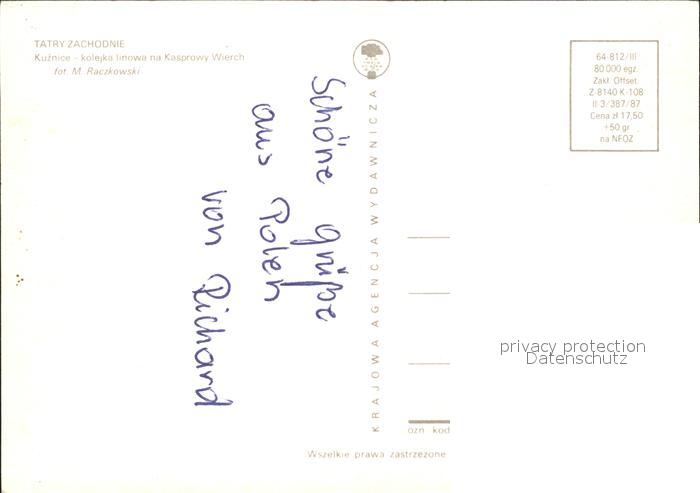 TATRY ZACHODNIE
Kuźnice - kolejka linowa na Kasprowy Wierch
fot. M. Raczkowski
Schöne grüße
aus Polen
von Richard
KRAJOWA AGENCJA WYDAWNICZA
64-812/III
80 000 egz.
Zakł. Offset.
Z-8140 K-108
II-3/387/87
Cena zł 17,50
+50 gr
na NFOZ
privacy protection
Datenschutz
ozn kod
Wszelkie prawa zastrzeżone